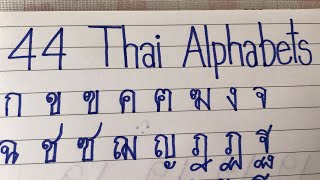 44 Thai Alphabets
ก ข ฃ ค ฅ ฆ ง จ
ฉ ช ซ ฌ ญ ฎ ฏ ฐ